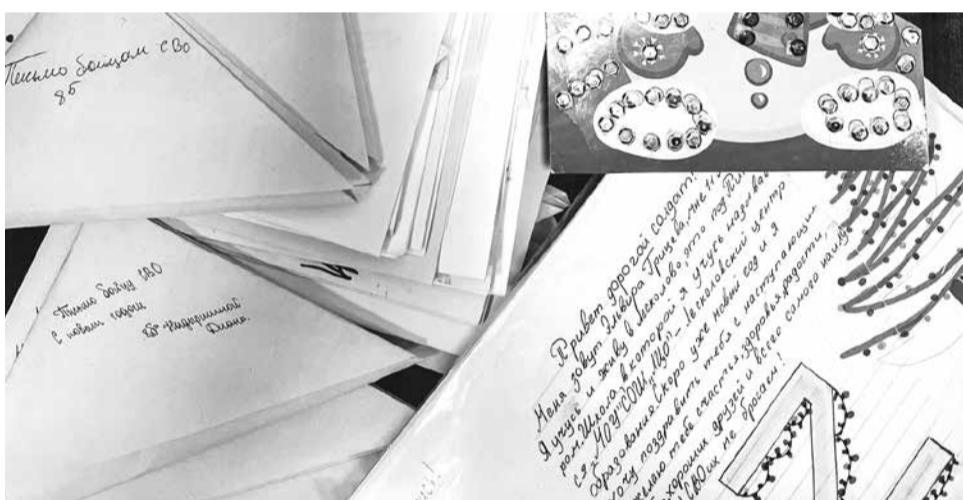 Письмо бойцам СВО
8Б
Письмо бойцу СВО
С новым годом
8Б
Диана.
Привет дорогой солдат!
Меня зовут Эльвира Грицева, мне
Я учусь и живу в Лесколово, это под
ром. Школа в которой я учусь называе
ся МОУ "СОШ "ЛЦО" - Лесколовский центр
образования. Скоро уже новый год и я
хочу поздравить тебя с наступающим
желаю тебе счастья, здоровья, радости,
хороших друзей и всего самого наилу
СВОих не бросаем!